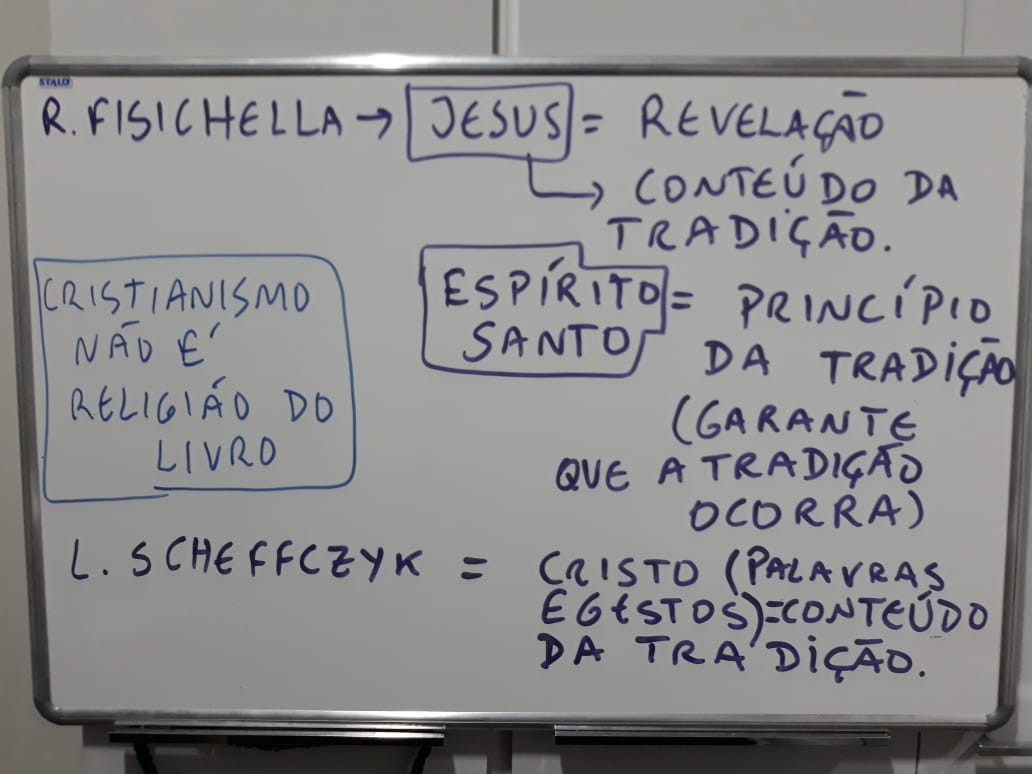 STALO
R. FISICHELLA → JESUS = REVELAÇÃO
→ CONTEÚDO DA
TRADIÇÃO.
ESPÍRITO
SANTO = PRINCÍPIO
DA TRADIÇÃO
(GARANTE
QUE A TRADIÇÃO
OCORRA)
CRISTIANISMO
NÃO É
RELIGIÃO DO
LIVRO
L. SCHEFFCZYK = CRISTO (PALAVRAS
E GESTOS)=CONTEÚDO
DA TRADIÇÃO.